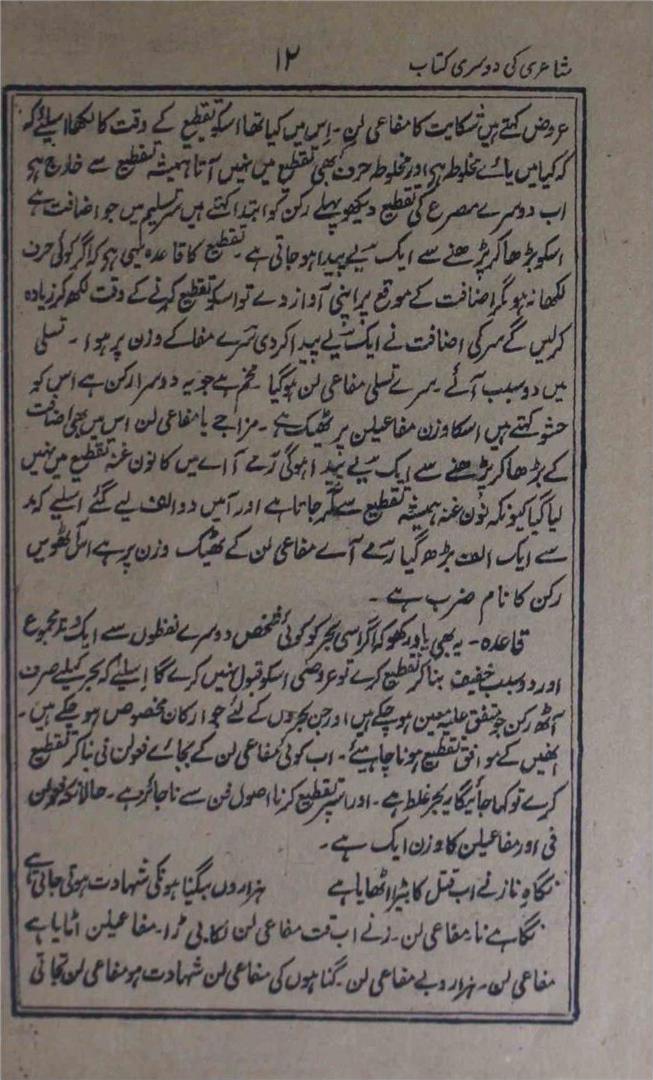 شاعری کی دوسری کتاب ۱۲
عروض کہتے ہیں شکایت کا مفاعی لن۔ اِس میں کیا تھا اسکو تقطیع کے وقت کا لکھا اسلئے کہ
کہ کیا میں یائے مخلوط ہی اور مخلوط حرف بھی تقطیع میں نہیں آتا ہمیشہ تقطیع سے خارج ہی
اب دوسرے مصرع کی تقطیع دیکھو پہلے رکن کو ابتدا کہتے ہیں سر تسلیم میں جو اضافت ہے
اسکو بڑھا کر پڑھنے سے ایک یے پیدا ہو جاتی ہے۔ تقطیع کا قاعدہ یہی ہو کہ اگر کوئی حرف
لکھا نہو مگر اضافت کے موقع پر اپنی آواز دے تو اسکو تقطیع کرنے کے وقت لکھ کر زیادہ
کرلیں گے سر کی اضافت نے ایک یے پیدا کردی سرے مفا کے وزن پر ہوا۔ تسلی
میں دو سبب آئے۔ سرے تسلی مفاعی لن ہوگیا خم ہے جو یہ دوسرا رکن ہے اس کو
حشو کہتے ہیں اسکا وزن مفاعیلن پر ٹھیک ہے۔ مزاجے یا مفاعی لن اس میں بھی اضافت
کے بڑھا کر پڑھنے سے ایک یے پیدا ہوگی رمے آاے میں کا نون غنہ تقطیع میں نہیں
لیا گیا کیونکہ نون غنہ ہمیشہ تقطیع سے گر جاتا ہے اور آمیں دو الف لیے گئے اسلیے کہ مد
سے ایک الف بڑھ گیا رمے آے مفاعی لن کے ٹھیک وزن پر ہے اس آٹھویں
رکن کا نام ضرب ہے۔
قاعدہ۔ یہ بھی یاد رکھو کہ اگر اسی بحر کو کوئی شخص دوسرے لفظوں سے ایک وتد مجموع
اور دو سبب خفیف بنا کر تقطیع کرے تو عروضی اسکو قبول نہیں کرے گا اِسلئے کہ بحر کیلے صرف
آٹھ رکن جو متفق علیہ معین ہو چکے ہیں اور جن بحروں کے لئے جو ارکان مخصوص ہو چکے ہیں۔
انھیں کے موافق تقطیع ہونا چاہیئے۔ اب کوئی مفاعی لن کے بجائے فعولن فی بنا کر تقطیع
کرے تو کہا جائیگا یہ بحر غلط ہے۔ اور اسپر تقطیع کرنا اصول فن سے ناجائز ہے۔ حالانکہ فعولن
فی اور مفاعیلن کا وزن ایک ہے۔
نگاہِ ناز نے اب قتل کا بیڑا اٹھایا ہے ہزاروں بیگناہونکی شہادت ہوتی جاتی ہے
نگاہے نا۔ مفاعی لن۔ زنے اب قت مفاعی لن لکا بی ڑا۔ مفاعیلن اٹایا ہے
مفاعی لن۔ ہزارو بے مفاعی لن۔ گناہوں کی مفاعی لن شہادت ہو مفاعی لن تجاتی